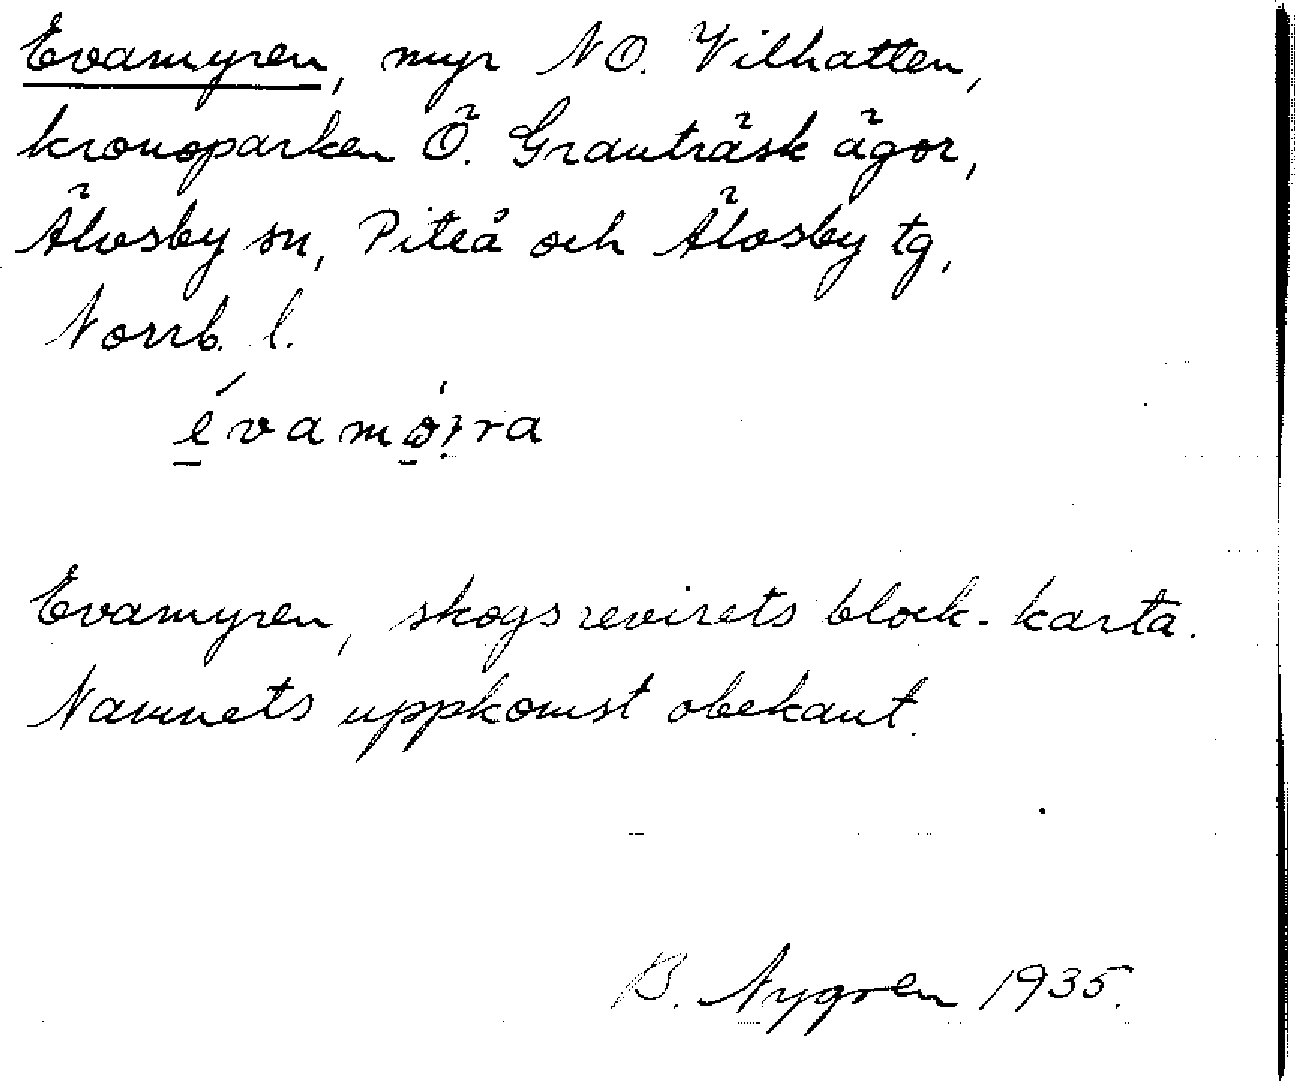 Evamyren, myr NO. Vilhatten,
kronoparken Ö. Granträsk ägor,
Älvsby sn, Piteå och Älvsby tg,
Norrb. l.
Evamyren, skogsrevirets block-karta.
Namnets uppkomst obekant.
B. Nygren 1935.